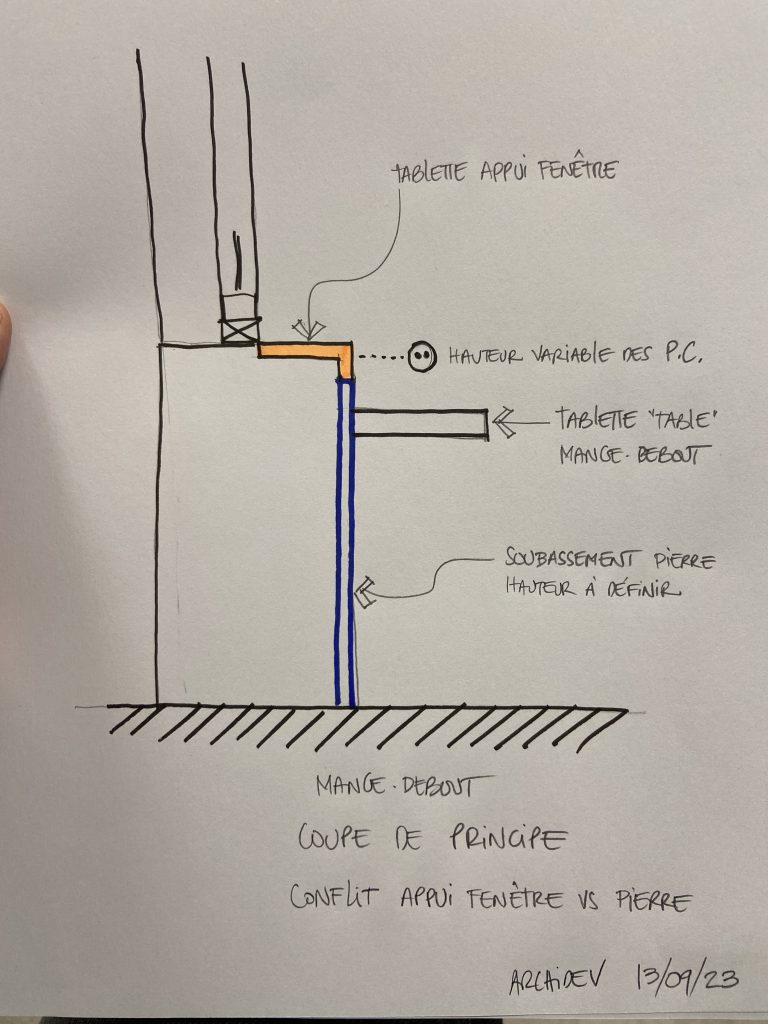 TABLETTE APPUI FENÊTRE
HAUTEUR VARIABLE DES P.C.
TABLETTE "TABLE"
MANGE-DEBOUT
SOUBASSEMENT PIERRE
HAUTEUR À DÉFINIR
MANGE-DEBOUT
COUPE DE PRINCIPE
CONFLIT APPUI FENÊTRE VS PIERRE
ARCAIDEV 13/09/23